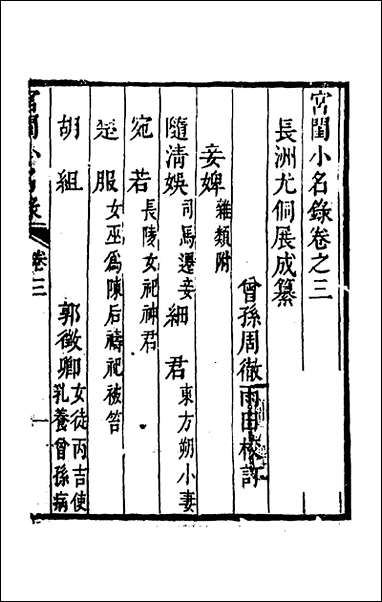 宮閨小名錄卷之三
長洲尤侗展成纂
曾孫周徹雨田校訂
妾婢 雜類附
隨清娛 司馬遷妾 細君 東方朔小妻
宛若 長陵女祀神君
楚服 女巫爲陳后禱祀被笞
胡組 郭徵卿 女徒丙吉使乳養曾孫病
宮閨小名錄 卷三 一